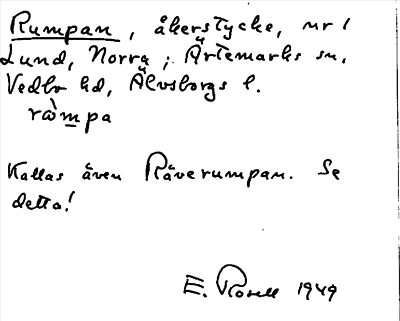 Rumpan, åkerstycke, nr 1
Lund, Norra; Ärtemarks sn,
Vedbo hd, Älvsborgs l.
ràmpa
Kallas även Räverumpan. Se
detta!
E. Rosell 1949